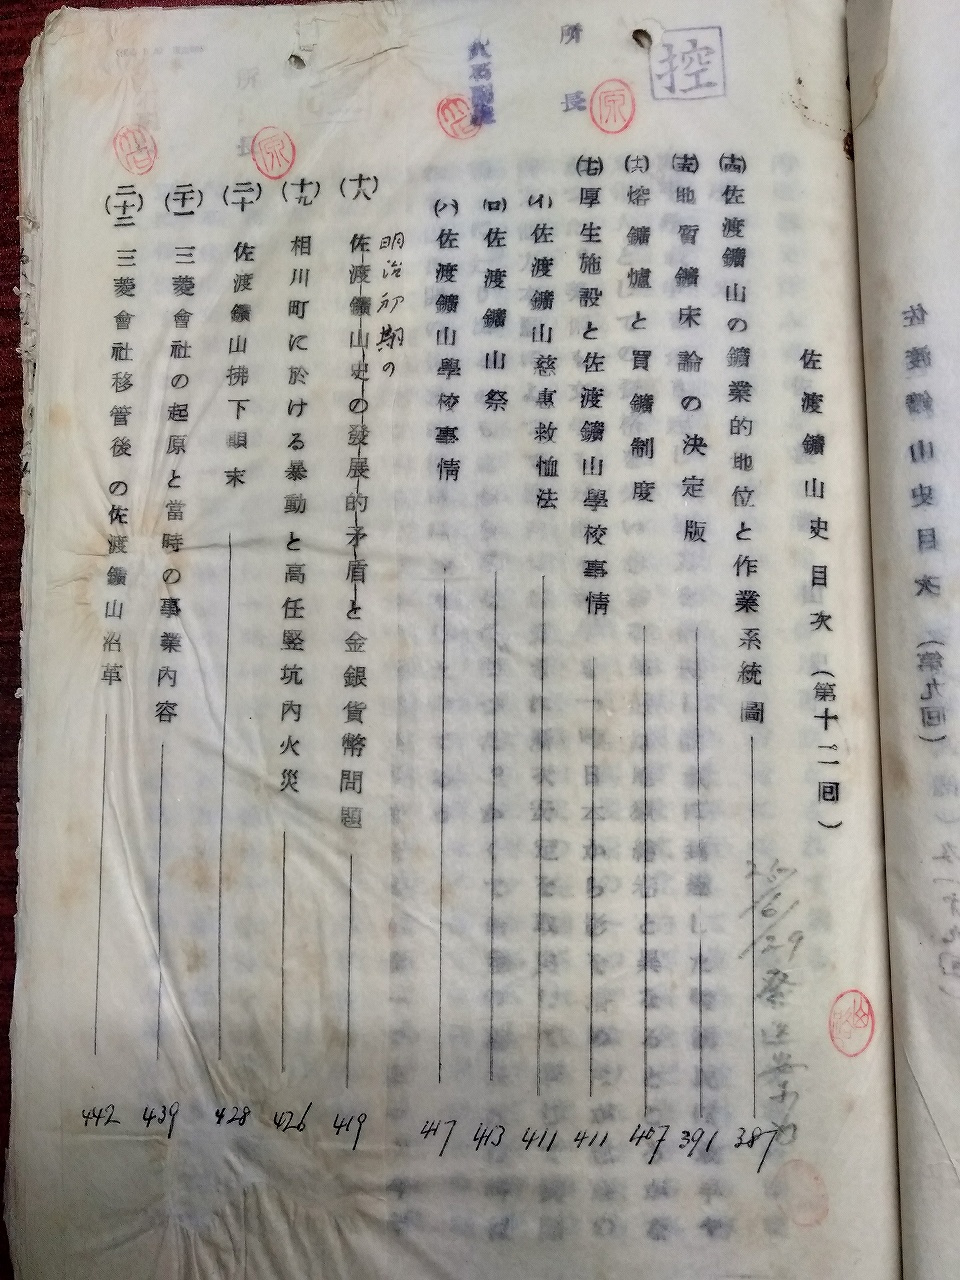 控
所長
佐渡鑛山史目次(第十二回)
(十四)佐渡鑛山の鑛業的地位と作業系統圖 387
(十五)地質鑛床論の決定版 391
(十六)熔鑛爐と買鑛制度 407
(十七)厚生施設と佐渡鑛山學校事情 411
(イ)佐渡鑛山慈惠救恤法 411
(ロ)佐渡鑛山祭 413
(ハ)佐渡鑛山學校事情 417
明治初期の
(十八)佐渡鑛山史の發展的矛盾と金銀貨幣問題 419
(十九)相川町に於ける暴動と高任竪坑內火災 426
(二十)佐渡鑛山拂下顚末 428
(二十一)三菱會社の起原と當時の事業內容 439
(二十二)三菱會社移管後の佐渡鑛山沿革 442
佐渡鑛山史目次(第九回)